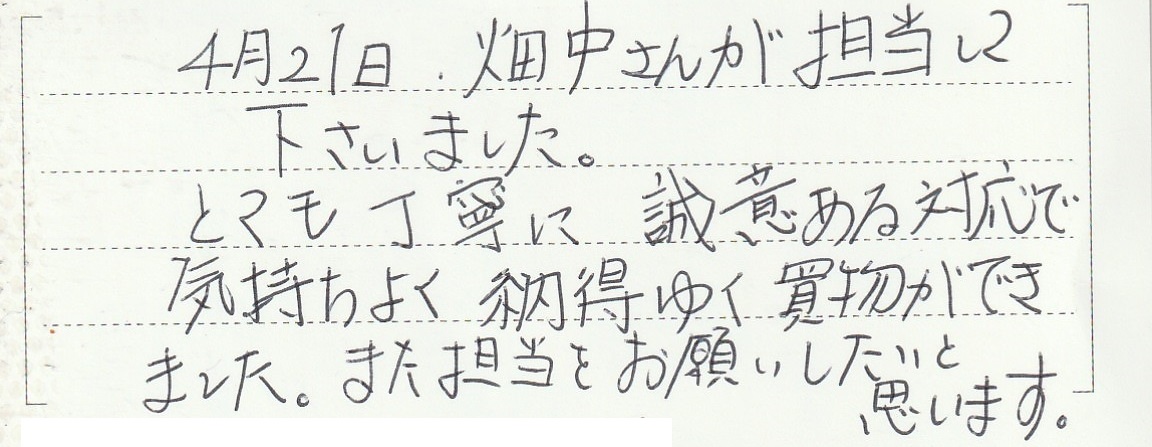 4月21日.畑中さんが担当して
下さいました。
とても丁寧に 誠意ある対応で
気持ちよく 納得ゆく買物ができ
ました。また担当をお願いしたいと
思います。